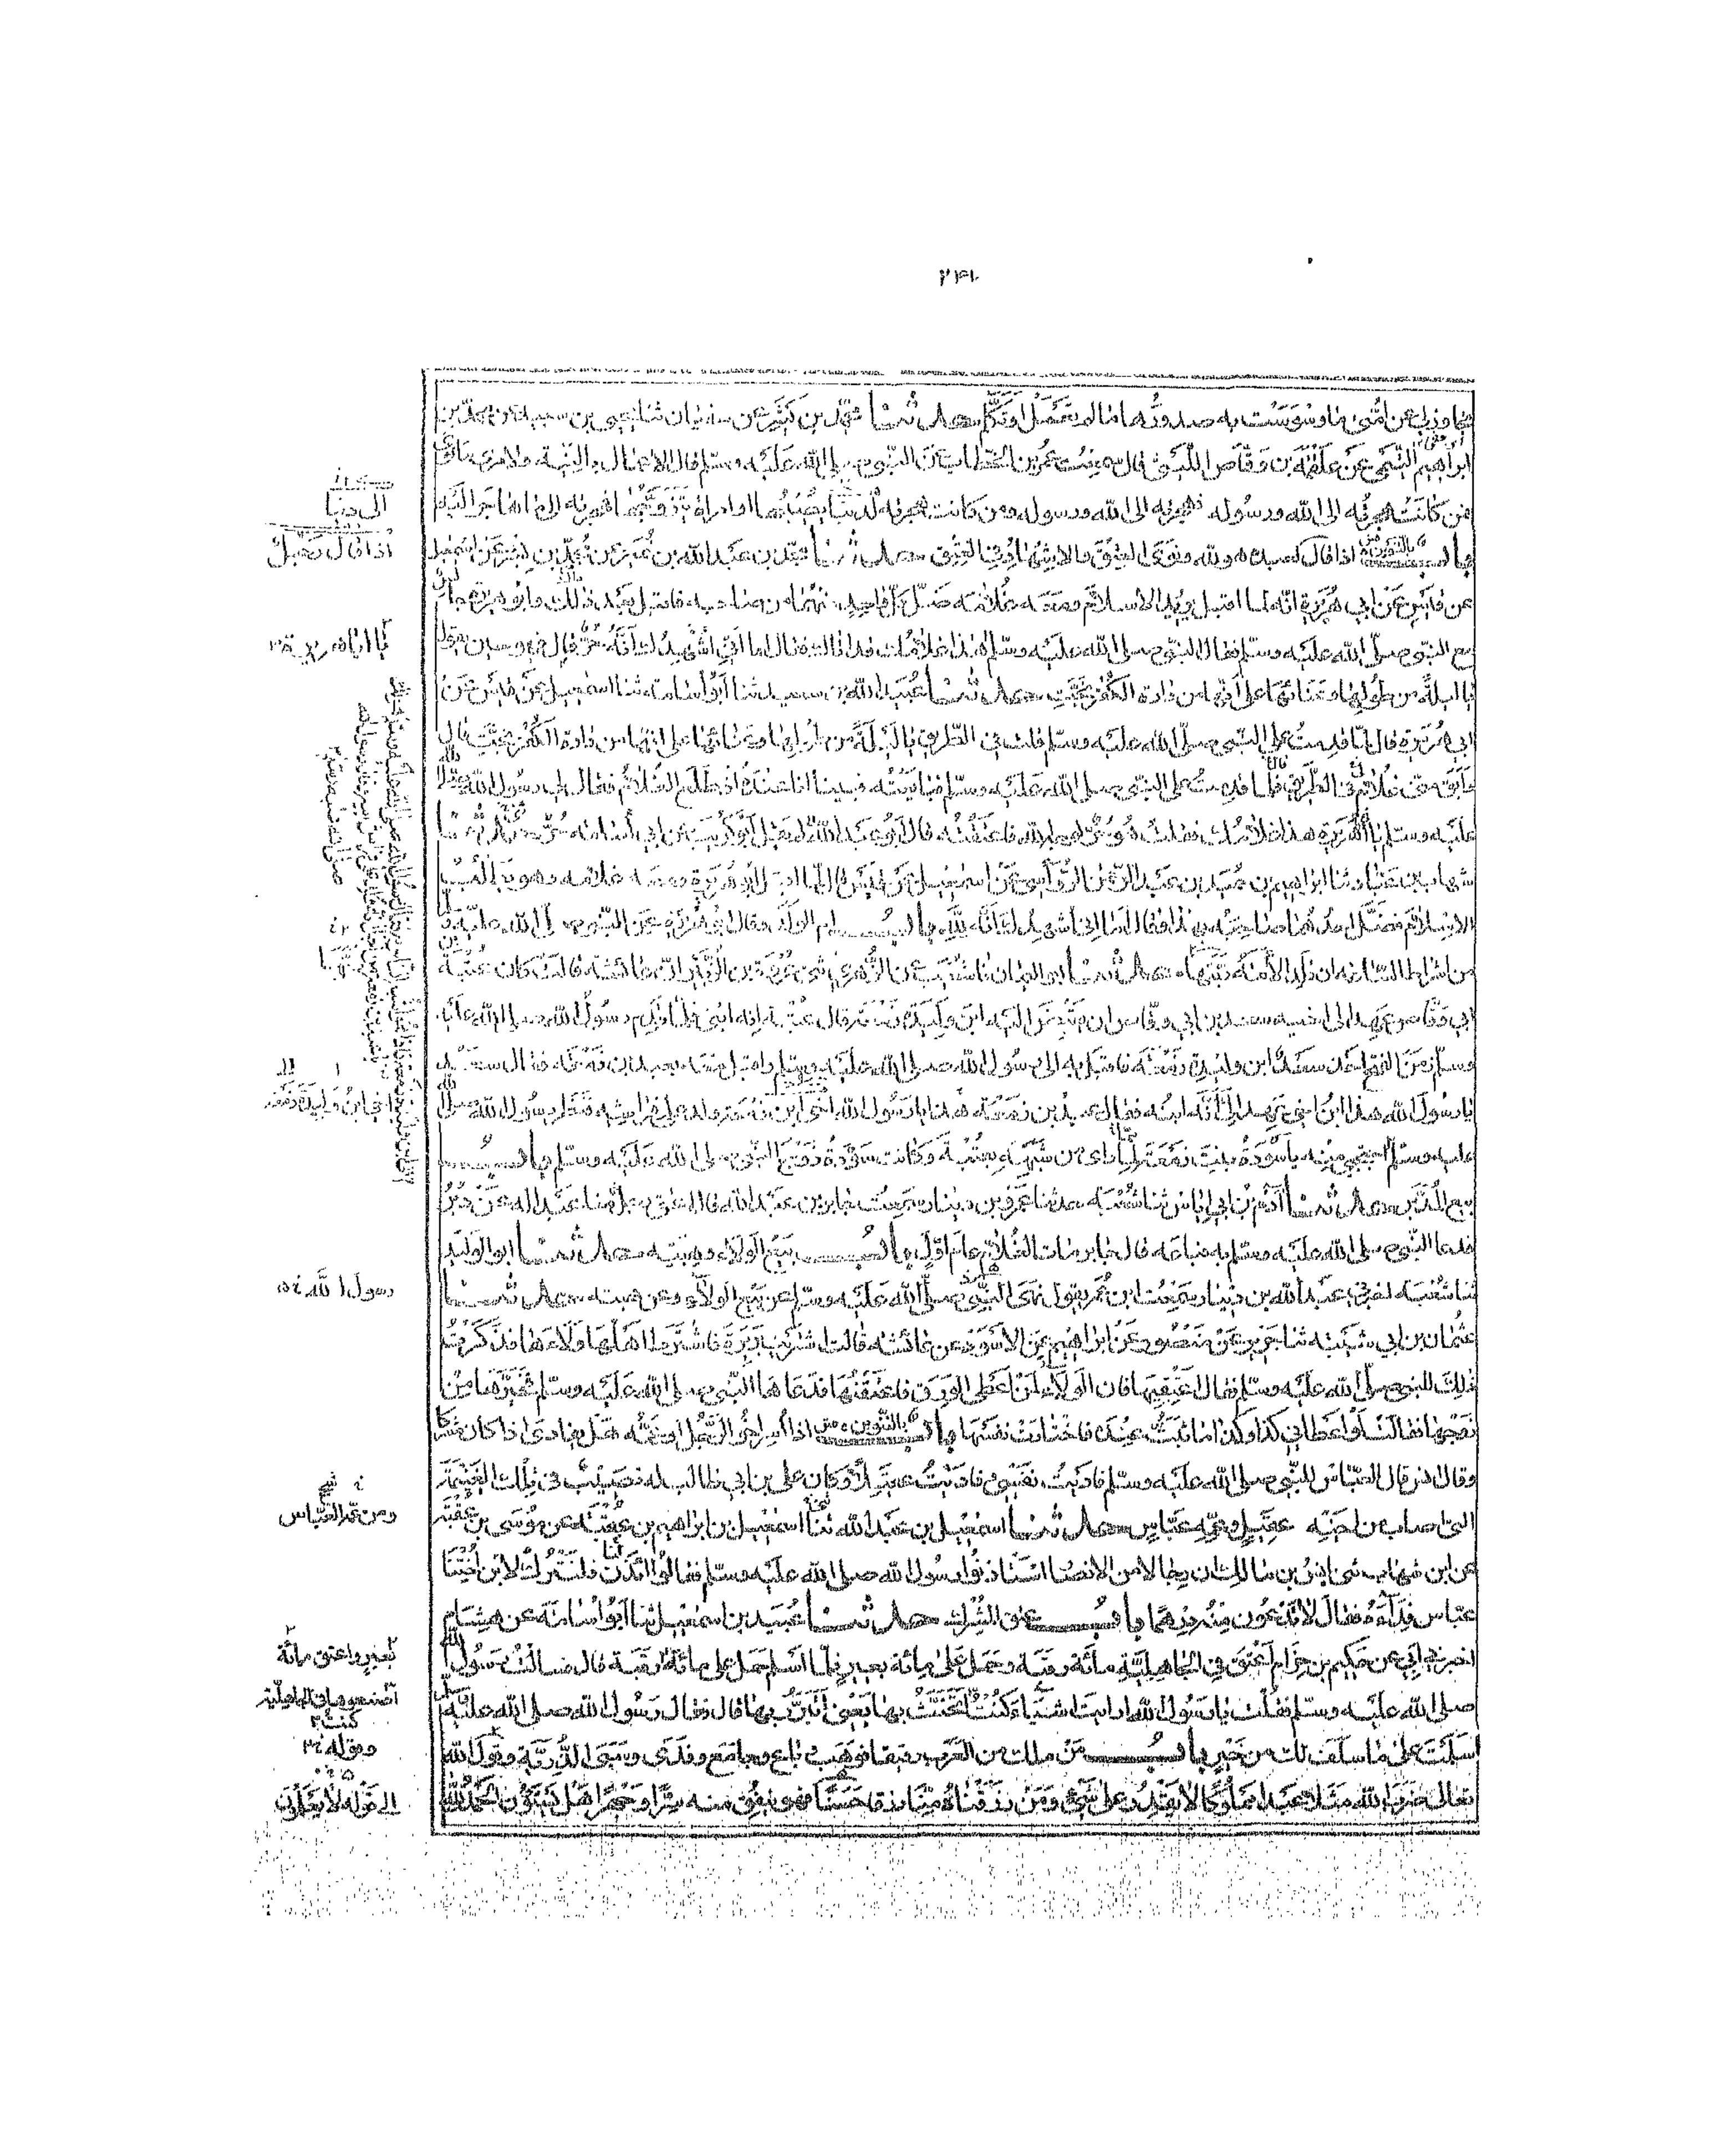 تجاوز لي عن امتي ما وسوست به صدورها ما لم تعمل او تكلم حدثنا محمد بن كثير عن سفيان ثنا يحيى بن سعيد عن محمد بن
ابراهيم التيمي عن علقمة بن وقاص الليثي قال سمعت عمر بن الخطاب عن النبي صلى الله عليه وسلم قال الاعمال بالنية ولامرئ ما نوى
فمن كانت هجرته الى الله ورسوله فهجرته الى الله ورسوله ومن كانت هجرته لدنيا يصيبها او امراة يتزوجها فهجرته الى ما هاجر اليه
باب اذا قال لعبده هو لله ونوى العتق والاشهاد في العتق حدثنا محمد بن عبد الله بن نمير عن محمد بن بشر عن اسمعيل
عن قيس عن ابي هريرة انه لما اقبل يريد الاسلام ومعه غلامه ضل كل واحد منهما من صاحبه فاقبل بعد ذلك وابو هريرة جالس
مع النبي صلى الله عليه وسلم فقال النبي صلى الله عليه وسلم يا ابا هريرة هذا غلامك قد اتاك فقال اما اني اشهدك انه حر قال فهو حين يقول
يا ليلة من طولها وعنائها على انها من دارة الكفر نجت حدثنا عبيد الله بن سعيد ثنا ابو اسامة ثنا اسمعيل عن قيس عن
ابي هريرة قال لما قدمت على النبي صلى الله عليه وسلم قلت في الطريق يا ليلة من طولها وعنائها على انها من دارة الكفر نجت قال
وابق مني غلام في الطريق فلما قدمت على النبي صلى الله عليه وسلم فبايعته فبينا انا عنده اذ طلع الغلام فقال لي رسول الله صلى الله
عليه وسلم يا ابا هريرة هذا غلامك فقلت هو حر لوجه الله فاعتقته قال ابو عبد الله لم يقل ابو كريب عن ابي اسامة حر حدثنا
شهاب بن عباد ثنا ابراهيم بن حميد بن عبد الرحمن الرؤاسي عن اسمعيل عن قيس قال لما اقبل ابو هريرة ومعه غلامه وهو يطلب
الاسلام فضل احدهما صاحبه بهذا وقال اما اني اشهدك انه لله باب ام الولد وقال ابو هريرة عن النبي صلى الله عليه وسلم
من اشراط الساعة ان تلد الامة ربتها حدثنا ابو اليمان انا شعيب عن الزهري ثني عروة بن الزبير ان عائشة قالت كان عتبة بن
ابي وقاص عهد الى اخيه سعد بن ابي وقاص ان يقبض اليه ابن وليدة زمعة قال عتبة انه ابني فلما قدم رسول الله صلى الله عليه
وسلم زمن الفتح اخذ سعد ابن وليدة زمعة فاقبل به الى رسول الله صلى الله عليه وسلم واقبل معه بعبد بن زمعة فقال سعد
يا رسول الله هذا ابن اخي عهد الي انه ابنه فقال عبد بن زمعة يا رسول الله هذا اخي ابن زمعة ولد على فراشه فنظر رسول الله صلى الله
عليه وسلم احتجبي منه يا سودة بنت زمعة لما راى من شبهه بعتبة وكانت سودة زوج النبي صلى الله عليه وسلم باب
بيع المدبر حدثنا آدم بن ابي اياس ثنا شعبة حدثنا عمرو بن دينار سمعت جابر بن عبد الله قال اعتق رجل منا عبدا له عن دبر
فدعا النبي صلى الله عليه وسلم به فباعه قال جابر مات الغلام عام اول باب بيع الولاء وهبته حدثنا ابو الوليد
ثنا شعبة اخبرني عبد الله بن دينار سمعت ابن عمر يقول نهى النبي صلى الله عليه وسلم عن بيع الولاء وعن هبته حدثنا
عثمان بن ابي شيبة ثنا جرير عن منصور عن ابراهيم عن الاسود عن عائشة قالت اشتريت بريرة فاشترط اهلها ولاءها فذكرت
ذلك للنبي صلى الله عليه وسلم فقال اعتقيها فان الولاء لمن اعطى الورق فاعتقتها فدعاها النبي صلى الله عليه وسلم فخيرها من
زوجها فقالت لو اعطاني كذا وكذا ما ثبت عنده فاختارت نفسها باب بالتنوين اذا اسر اخو الرجل او عمه هل يفادى اذا كان مشركا
وقال انس قال العباس للنبي صلى الله عليه وسلم فاديت نفسي وفاديت عقيلا وكان علي بن ابي طالب له نصيب في تلك الغنيمة
التي اصاب من اخيه عقيل وعمه عباس حدثنا اسمعيل بن عبد الله ثنا اسمعيل بن ابراهيم بن عقبة عن موسى بن عقبة
عن ابن شهاب ثني انس بن مالك ان رجالا من الانصار استاذنوا رسول الله صلى الله عليه وسلم فقالوا ائذن لنا فلنترك لابن اختنا
عباس فداءه فقال لا تدعون منه درهما باب عتق المشرك حدثنا عبيد بن اسمعيل ثنا ابو اسامة عن هشام
اخبرني ابي عن حكيم بن حزام اعتق في الجاهلية مائة رقبة وحمل على مائة بعير فلما اسلم حمل على مائة رقبة قال فسالت رسول الله
صلى الله عليه وسلم فقلت يا رسول الله ارايت اشياء كنت اتحنث بها يعني اتبرر بها قال فقال رسول الله صلى الله عليه
اسلمت على ما سلف لك من خير باب من ملك من العرب رقيقا فوهب وباع وجامع وفدى وسبى الذرية وقول الله
تعالى ضرب الله مثلا عبدا مملوكا لا يقدر على شيء ومن رزقناه منا رزقا حسنا فهو ينفق منه سرا وجهرا هل يستوون الحمد لله
الى دنيا
اذا قال رجل
يا ابا هريرة
اخي ابن وليدة زمعة
رسول الله
ومن عمه العباس
بعير واعتق مائة
اصنعها في الجاهلية
كنت
وقوله
الى قوله لا يعلمون